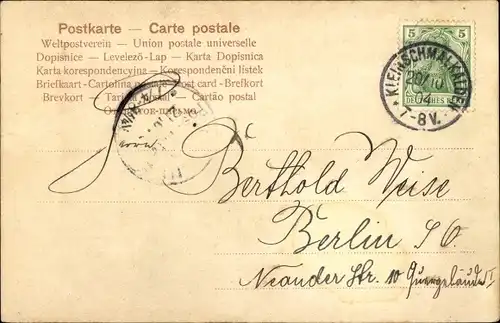 Postkarte — Carte postale
Weltpostverein — Union postale universelle
Dopisnice — Levelező-Lap — Karta Dopisnica
Karta korespondencyjna — Korespondenční lístek
Briefkaart - Cartolina postale - Post card - Brefkort
Brevkort — Tarjeta postal — Cartão postal
Открытое письмо
5 5
DEUTSCHES REICH
KLEINSCHMALKALDEN
20/10
04
7-8 V.
Berthold Weise
Berlin SO.
Neander Str. 10 Quergebäude II